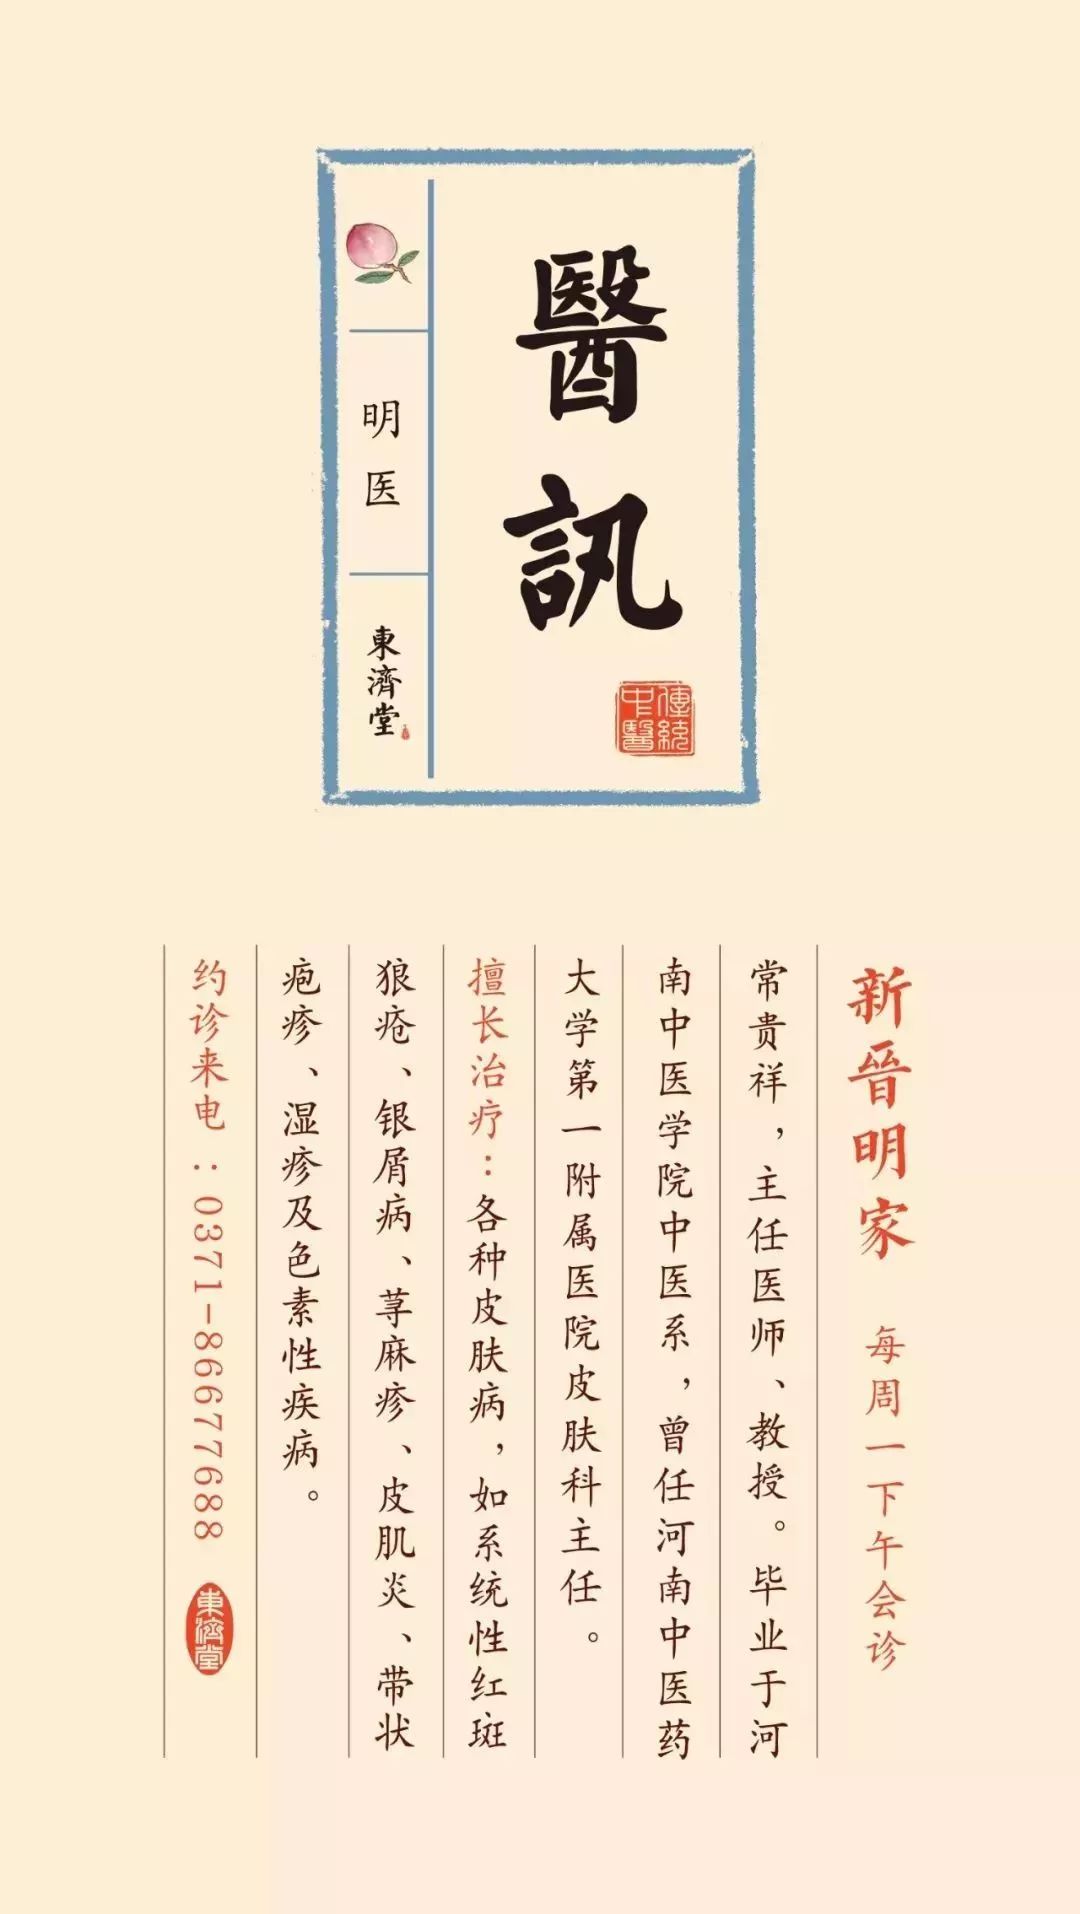 醫訊
傳統中醫
明医
東濟堂
新晉明家 每周一下午会诊
常贵祥，主任医师、教授。毕业于河
南中医学院中医系，曾任河南中医药
大学第一附属医院皮肤科主任。
擅长治疗：各种皮肤病，如系统性红斑
狼疮、银屑病、荨麻疹、皮肌炎、带状
疱疹、湿疹及色素性疾病。
约诊来电：0371-86677688
東濟堂